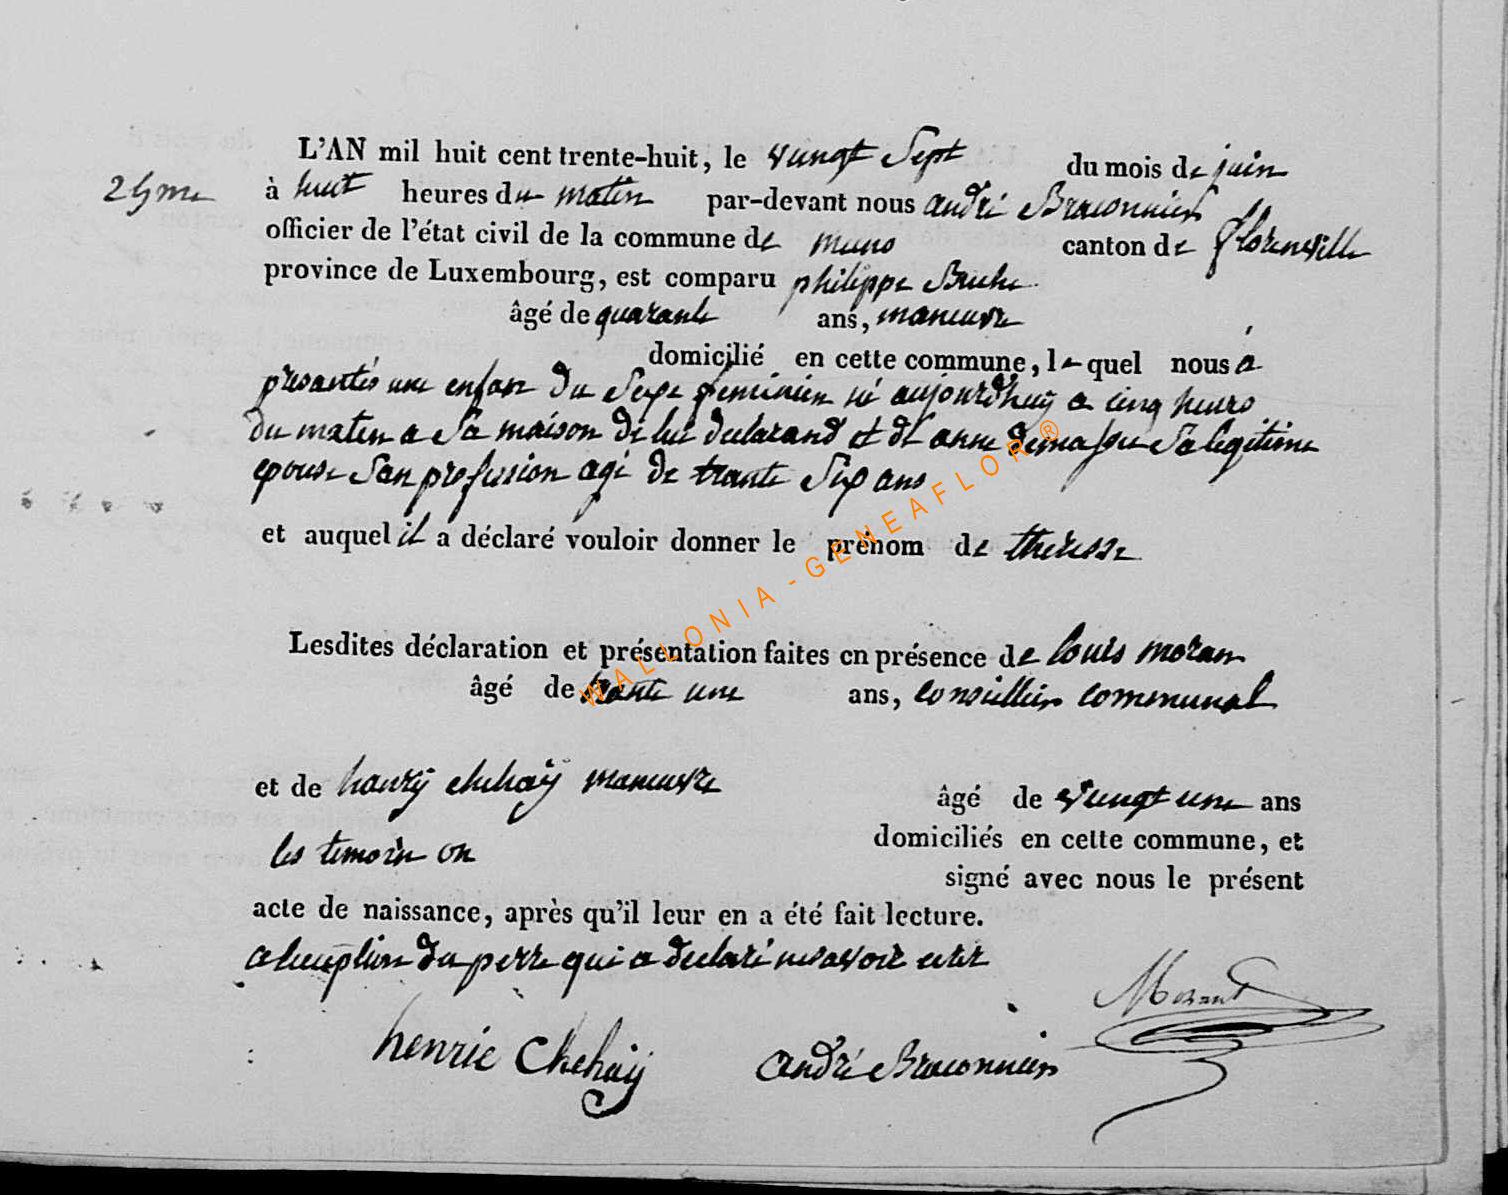 L'AN mil huit cent trente-huit, le vungt Sept du mois de juin
à huit heures du matin par-devant nous andré Braconnier
officier de l'état civil de la commune de muno canton de florenville
province de Luxembourg, est comparu philippe
âgé de quarante ans, maneuvre
domicilié en cette commune, le quel nous a
presantés une enfan du Sexe feminien né aujourdhuÿ a cinq heurs
Du maten a Sa maison de lui declarand et de anne Sa legitime
epouse San profession agé de trante Six ans
et auquel il a déclaré vouloir donner le prénom de theresse
WALLONIA - GENEAFLOR ®
Lesdites déclaration et présentation faites en présence de louis moran
âgé de trante une ans, consillier communal
et de hanrÿ chehaÿ maneuvre âgé de vungt une ans
les temoin on domiciliés en cette commune, et
signé avec nous le présent
acte de naissance, après qu'il leur en a été fait lecture.
a du perre qui a declaré ne savoir
Morant
henrie Chehaÿ andré Braconnier